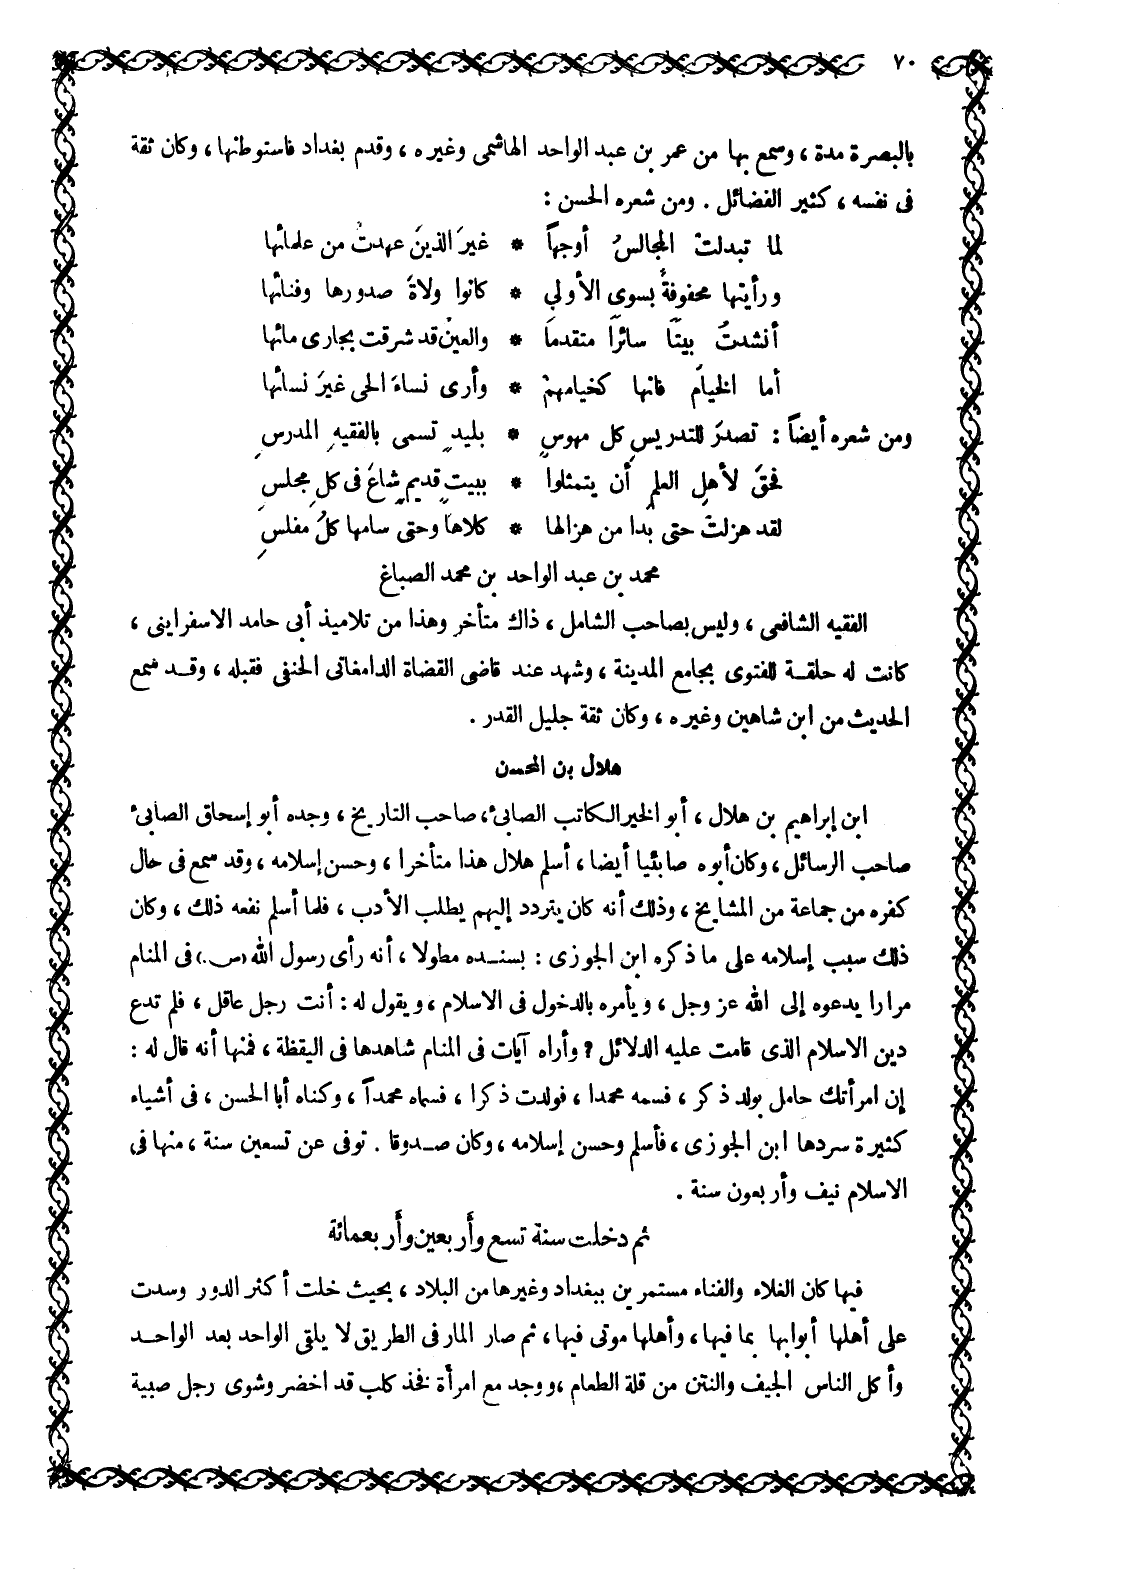 ٧٠
بالبصرة مدة ، وسمع بها من عمر بن عبد الواحد الهاشمى وغيره ، وقدم بغداد فاستوطنها ، وكان ثقة
فى نفسه ، كثير الفضائل . ومن شعره الحسن :
لما تبدلتْ المجالسُ أوجهاً * غيرَ الذينَ عهدتُ من علمائها
ورأيتها محفوفةً بسوى الأولي * كانوا ولاةَ صدورها وفنائها
أنشدتُ بيتاً سائراً متقدماً * والعينُ قد شرقت بجارى مائها
أما الخيام فانها كخيامهمْ * وأرى نساءَ الحى غيرَ نسائها
ومن شعره أيضاً : تصدرَ للتدريسِ كل مهوسٍ * بليدٍ تسمى بالفقيهِ المدرسِ
فحقَ لأهلِ العلمِ أن يتمثلوا * ببيتٍ قديمٍ شاعَ فى كلِ مجلسِ
لقد هزلتْ حتى بدا من هزالها * كلاها وحتى سامها كلُ مفلسِ
محمد بن عبد الواحد بن محمد الصباغ
الفقيه الشافعى ، وليس بصاحب الشامل ، ذاك متأخر وهذا من تلاميذ أبى حامد الاسفراينى ،
كانت له حلقـة للفتوى بجامع المدينة ، وشهد عند قاضى القضاة الدامغانى الحنفى فقبله ، وقـد سمع
الحديث من ابن شاهين وغيره ، وكان ثقة جليل القدر .
هلال بن المحسن
ابن إبراهيم بن هلال ، أبو الخير الكاتب الصابئ ، صاحب التاريخ ، وجده أبو إسحاق الصابئ
صاحب الرسائل ، وكان أبوه صابئيا أيضا ، أسلم هلال هذا متأخرا ، وحسن إسلامه ، وقد سمع فى حال
كفره من جماعة من المشايخ ، وذلك أنه كان يتردد إليهم يطلب الأدب ، فلما أسلم نفعه ذلك ، وكان
ذلك سبب إسلامه على ما ذكره ابن الجوزى : بسنـده مطولا ، أنه رأى رسول الله (س.) فى المنام
مرارا يدعوه إلى الله عز وجل ، ويأمره بالدخول فى الاسلام ، ويقول له : أنت رجل عاقل ، فلم تدع
دين الاسلام الذى قامت عليه الدلائل ؟ وأراه آيات فى المنام شاهدها فى اليقظة ، فمنها أنه قال له :
إن امرأتك حامل بولد ذكر ، فسمه محمدا ، فولدت ذكرا ، فسماه محمداً ، وكناه أبا الحسن ، فى أشياء
كثيرة سردها ابن الجوزى ، فأسلم وحسن إسلامه ، وكان صـدوقا . توفى عن تسعين سنة ، منها فى
الاسلام نيف وأربعون سنة .
ثم دخلت سنة تسع وأربعين وأربعمائة
فيها كان الغلاء والفناء مستمرين ببغداد وغيرها من البلاد ، بحيث خلت أكثر الدور وسدت
على أهلها أبوابها بما فيها ، وأهلها موتى فيها ، ثم صار المار فى الطريق لا يلقى الواحد بعد الواحـد
وأكل الناس الجيف والنتن من قلة الطعام ، ووجد مع امرأة فخذ كلب قد اخضر وشوى رجل صبية